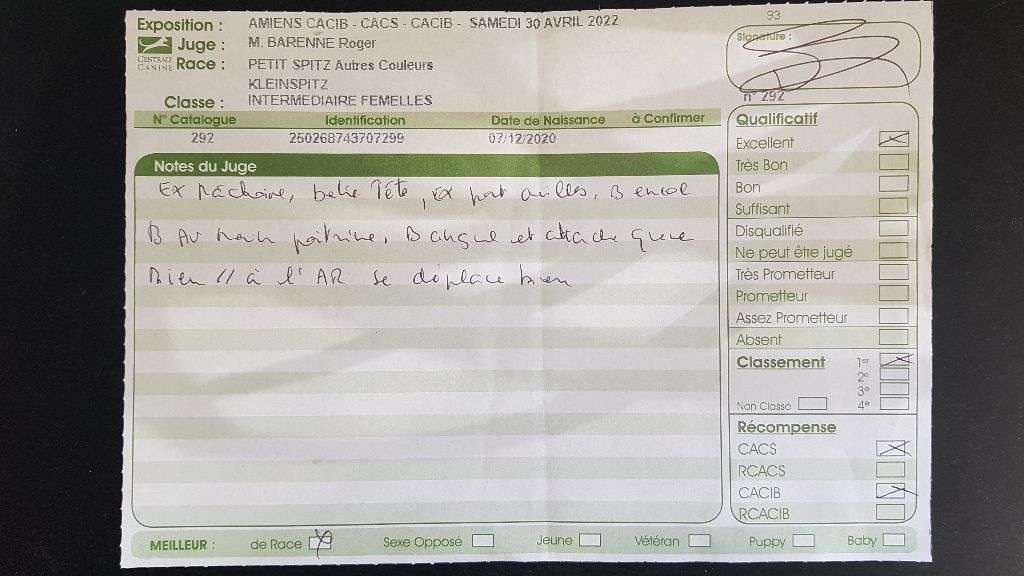 Exposition : AMIENS CACIB - CACS - CACIB - SAMEDI 30 AVRIL 2022
CENTRALE CANINE
Juge : M. BARENNE Roger
Race : PETIT SPITZ Autres Couleurs
KLEINSPITZ
Classe : INTERMEDIAIRE FEMELLES
93
Signature :
n° 292
N° Catalogue Identification Date de Naissance à Confirmer
292 250268743707299 07/12/2020
Notes du Juge
Ex Machoire, belle Tête, ex port oreilles, B encol
B Av main poitrine, B angul et attache queue
Bien // à l'AR se déplace bien
Qualificatif
Excellent
Très Bon
Bon
Suffisant
Disqualifié
Ne peut être jugé
Très Prometteur
Prometteur
Assez Prometteur
Absent
Classement 1er
2e
3e
Non Classé 4e
Récompense
CACS
RCACS
CACIB
RCACIB
MEILLEUR : de Race Sexe Opposé Jeune Vétéran Puppy Baby